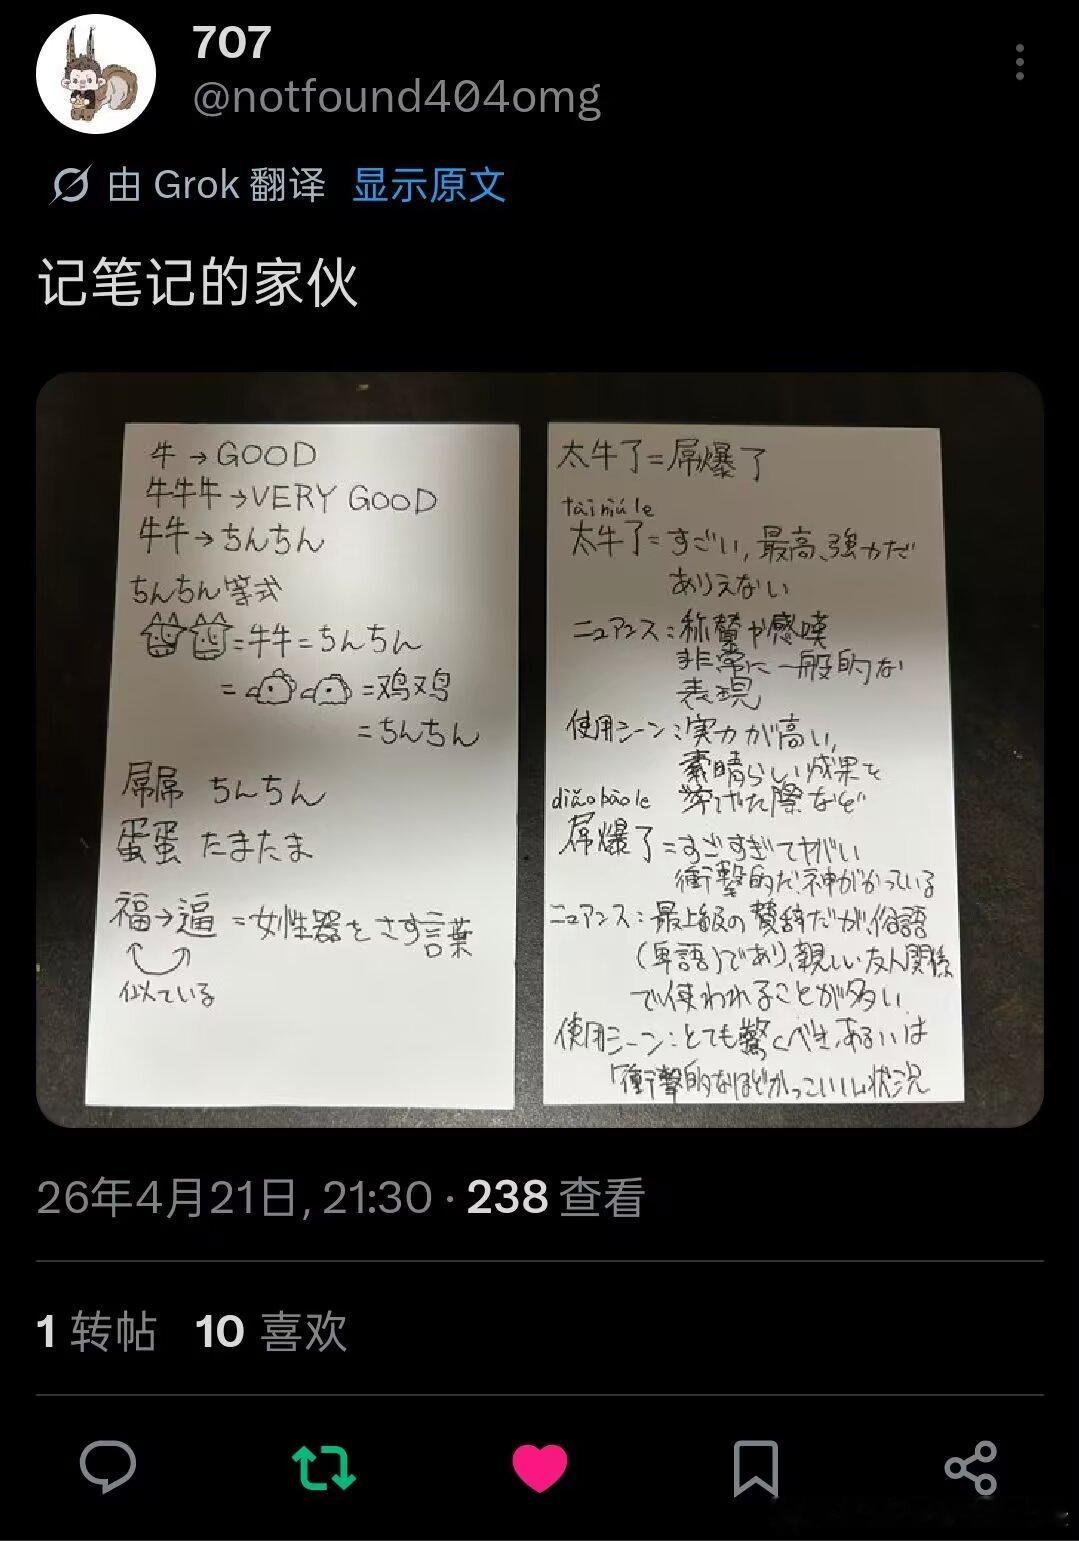 707
@notfound404omg
由 Grok 翻译 显示原文
记笔记的家伙
牛→GOOD
牛牛牛→VERY GOOD
牛牛→ちんちん
ちんちん等式
=牛牛=ちんちん
= =鸡鸡
=ちんちん
屌屌 ちんちん
蛋蛋 たまたま
福→逼=女性器をさす言葉
似ている
太牛了=屌爆了
tài niú le
太牛了=すごい,最高、強力だ
ありえない
ニュアンス:称賛や感嘆
非常に一般的な
表現
使用シーン:実力が高い,
素晴らしい成果を
diǎo bào le 際など
屌爆了=すごすぎてヤバい
衝撃的だ、神がかっている
ニュアンス:最上級の賛辞だが、俗語
(卑語)であり、親しい友人関係
で使われることが多い
使用シーン:とても驚くべき、あるいは
「衝撃的なほどかっこいい」状況
26年4月21日, 21:30 · 238 查看
1 转帖 10 喜欢